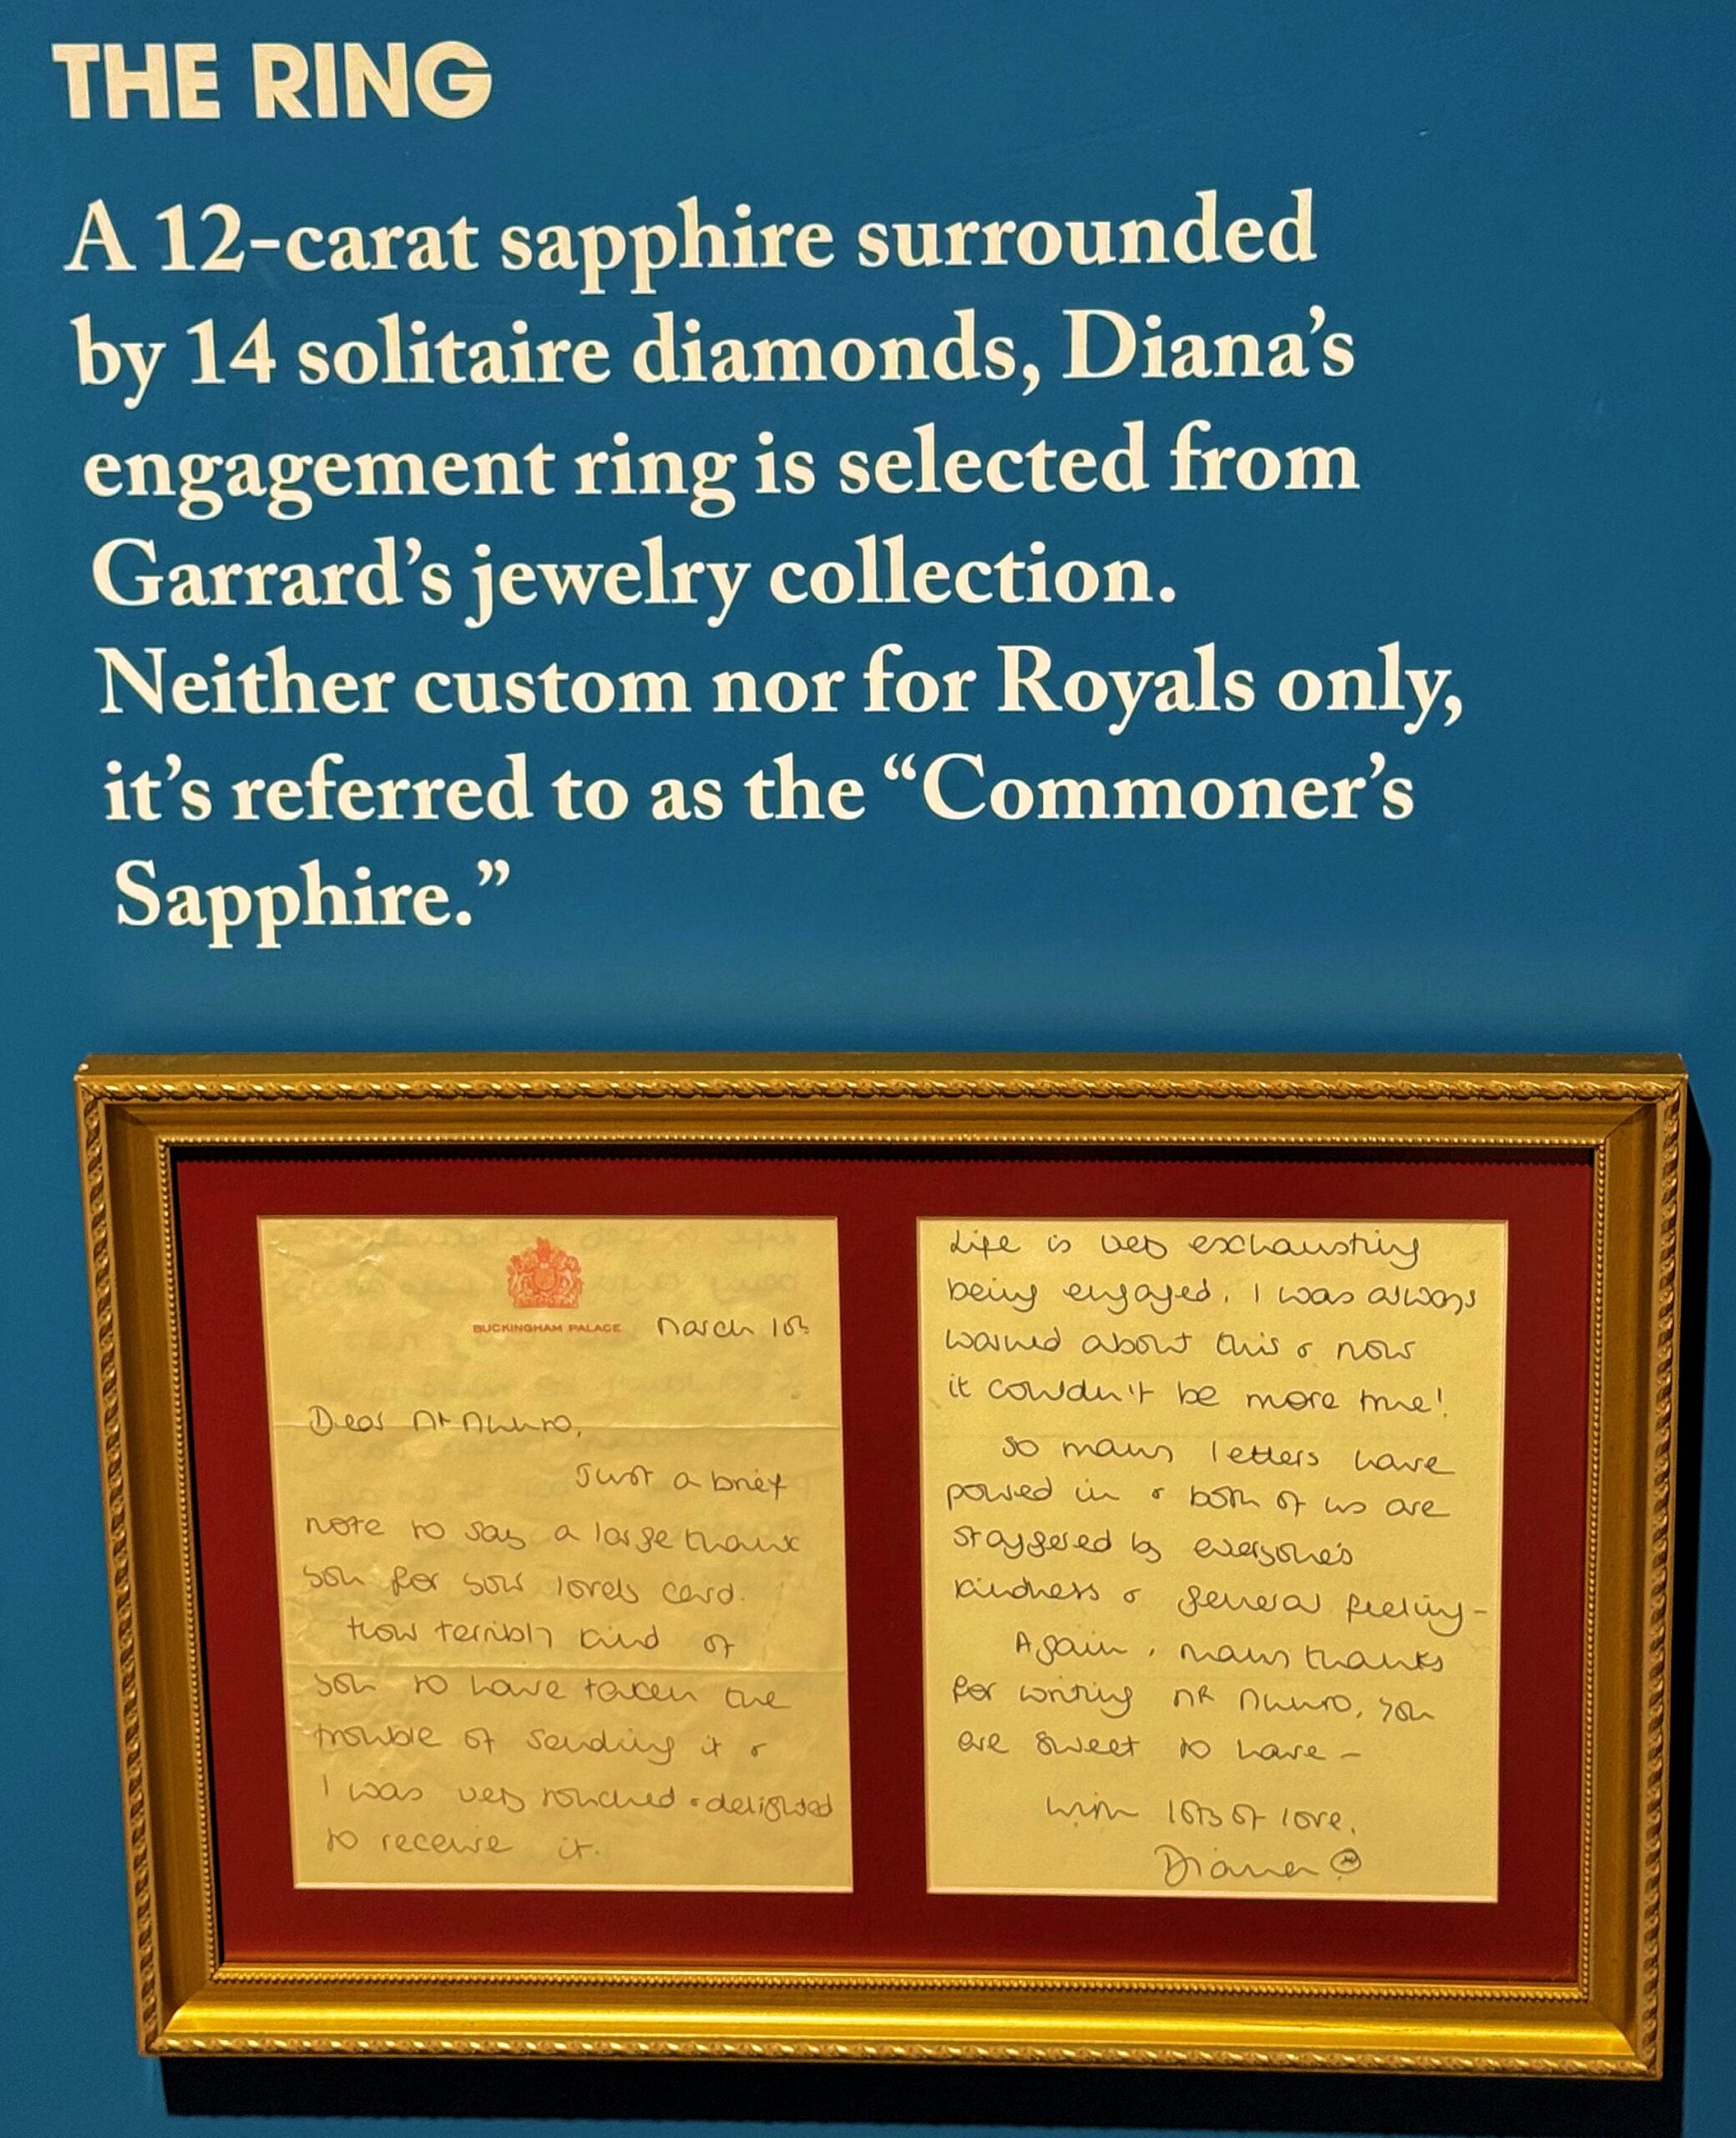 THE RING
A 12-carat sapphire surrounded
by 14 solitaire diamonds, Diana’s
engagement ring is selected from
Garrard’s jewelry collection.
Neither custom nor for Royals only,
it’s referred to as the “Commoner’s
Sapphire.”
BUCKINGHAM PALACE March
Dear Mr Munro,
Just a brief
note to say a large thank
you for your lovely card.
How terribly kind of
you to have taken the
trouble of sending it &
I was very touched & delighted
to receive it.
Life is very exhausting
being engaged. I was always
warned about this & now
it couldn't be more true!
So many letters have
poured in & both of us are
staggered by everyone's
kindness & general feeling -
Again, many thanks
for writing Mr Munro, you
are sweet to have -
With lots of love,
Diana